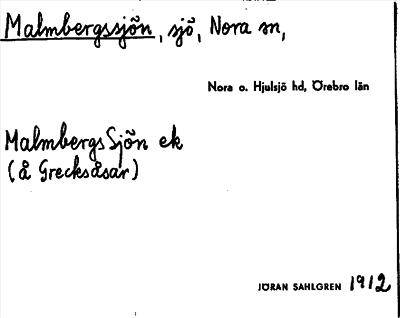 Malmbergssjön, sjö, Nora sn,
Nora o. Hjulsjö hd, Örebro län
MalmbergsSjön ek
(å Grecksåsar)
JÖRAN SAHLGREN 1912